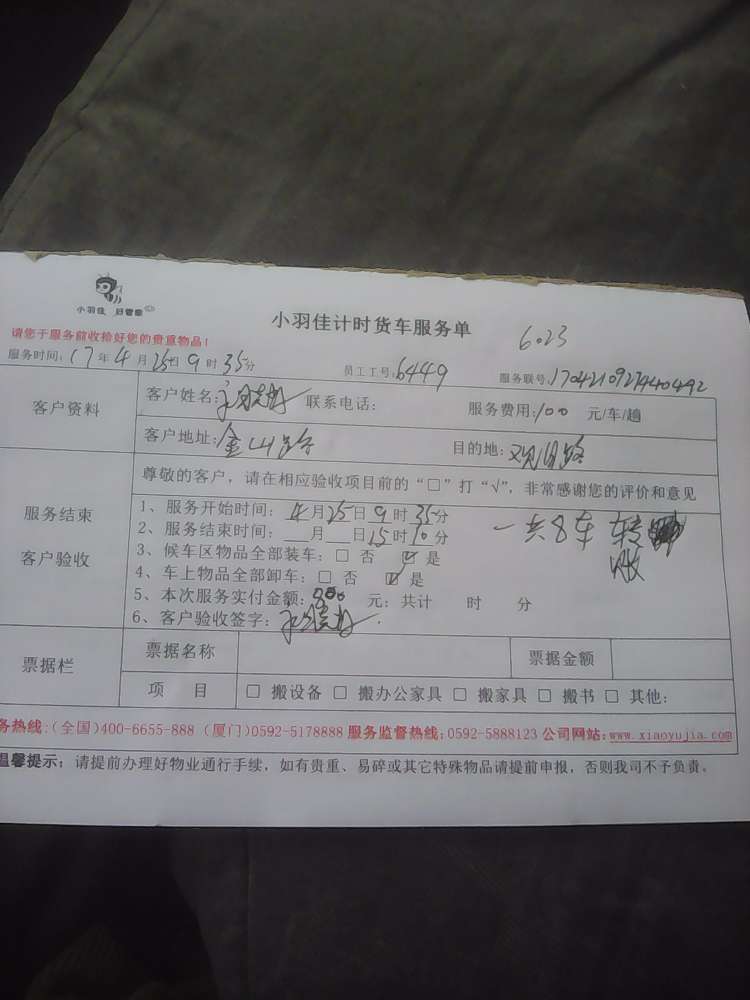 小羽佳 好管家
小羽佳计时货车服务单
6023
请您于服务前收拾好您的贵重物品!
服务时间: 17年4月25日9时35分 员工工号: 6449 服务联号:
客户资料
客户姓名: 联系电话: 服务费用: 100 元/车/趟
客户地址: 金山 目的地: 观日路
服务结束
客户验收
尊敬的客户，请在相应验收项目前的“□”打“√”，非常感谢您的评价和意见
1、服务开始时间: 4月25日9时35分
一共8车 转
账
2、服务结束时间: __月__日15时10分
3、候车区物品全部装车: □ 否 ☑ 是
4、车上物品全部卸车: □ 否 ☑ 是
5、本次服务实付金额: 800 元: 共计 时 分
6、客户验收签字:
票据栏
票据名称 票据金额
项 目 □ 搬设备 □ 搬办公家具 □ 搬家具 □ 搬书 □ 其他:
务热线:(全国)400-6655-888 (厦门)0592-5178888 服务监督热线: 0592-5888123 公司网站: www.xiaoyujia.com
温馨提示: 请提前办理好物业通行手续，如有贵重、易碎或其它特殊物品请提前申报，否则我司不予负责。